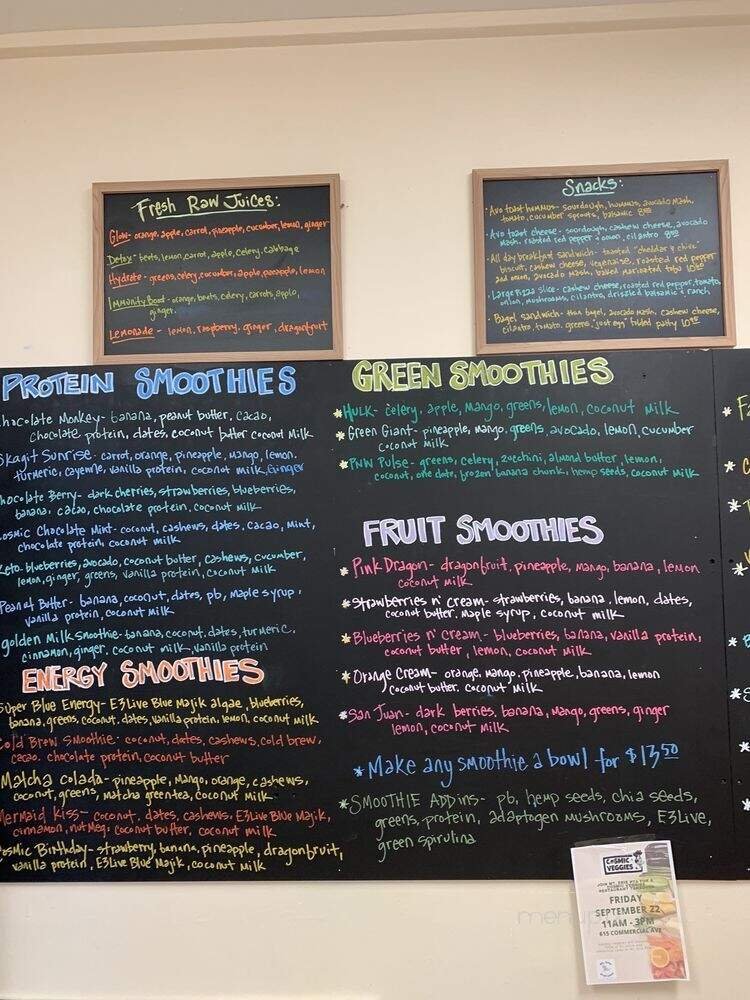 Fresh Raw Juices:
Glow- orange, apple, carrot, pineapple, cucumber, lemon, ginger
Detox- beets, lemon, carrot, apple, celery, cabbage
Hydrate- greens, celery, cucumber, apple, pineapple, lemon
Immunity Boost- orange, beets, celery, carrots, apple,
ginger.
Lemonade- lemon, raspberry, ginger, dragonfruit
Snacks:
Avo toast hummus- sourdough, hummus, avocado mash,
tomato, cucumber sprouts, balsamic 8.50
Avo toast cheese- sourdough, cashew cheese, avocado
mash, roasted red pepper + onion, cilantro 8.50
All day breakfast sandwich- toasted "cheddar & chive"
biscuit, cashew cheese, vegenaise, roasted red pepper
and onion, avocado mash, baked marinated tofu 10.50
Large Pizza slice- cashew cheese, roasted red pepper, tomato,
onion, mushrooms, cilantro, drizzled balsamic & ranch
Bagel sandwich- bagel, avocado mash, cashew cheese,
cilantro, tomato, greens, "just egg" folded patty 10.50
PROTEIN SMOOTHIES
hocolate Monkey- banana, peanut butter, cacao,
chocolate protein, dates, coconut butter coconut milk
Skagit Sunrise- carrot, orange, pineapple, mango, lemon,
turmeric, cayenne, vanilla protein, coconut milk, Ginger
hocolate Berry- dark cherries, strawberries, blueberries,
banana, cacao, chocolate protein, coconut milk
osmic Chocolate Mint- coconut, cashews, dates, cacao, mint,
chocolate protein, coconut milk
Keto- blueberries, avocado, coconut butter, cashews, cucumber,
lemon, ginger, greens, vanilla protein, coconut milk
Peanut Butter- banana, coconut, dates, pb, maple syrup,
vanilla protein, coconut milk
golden Milk Smoothie- banana, coconut, dates, turmeric,
cinnamon, ginger, coconut milk, vanilla protein
ENERGY SMOOTHIES
Super Blue Energy- E3Live Blue Majik algae, blueberries,
banana, greens, coconut, dates, vanilla protein, lemon, coconut milk
Cold Brew Smoothie- coconut, dates, cashews, cold brew,
cacao, chocolate protein, coconut butter
Matcha colada- pineapple, mango, orange, cashews,
coconut, greens, matcha green tea, coconut milk
Mermaid Kiss- coconut, dates, cashews, E3Live Blue Majik,
cinnamon, nutmeg, coconut butter, coconut milk
Cosmic Birthday- strawberry, banana, pineapple, dragonfruit,
vanilla protein, E3Live Blue Majik, coconut milk
GREEN SMOOTHIES
* Hulk- celery, apple, mango, greens, lemon, coconut milk
* Green Giant- pineapple, mango, greens, avocado, lemon, cucumber
coconut milk
* PNW Pulse- greens, celery, zucchini, almond butter, lemon,
coconut, one date, frozen banana chunk, hemp seeds, coconut milk
FRUIT SMOOTHIES
* Pink Dragon- dragonfruit, pineapple, mango, banana, lemon
coconut milk
* Strawberries n' Cream- strawberries, banana, lemon, dates,
coconut butter, maple syrup, coconut milk
* Blueberries n' Cream- blueberries, banana, vanilla protein,
coconut butter, lemon, coconut milk
* Orange Cream- orange, mango, pineapple, banana, lemon
coconut butter, coconut milk
* San Juan- dark berries, banana, mango, greens, ginger
lemon, coconut milk
* Make any smoothie a bowl for $13.50
* Smoothie Addins- pb, hemp seeds, chia seeds,
greens, protein, adaptogen mushrooms, E3Live,
green spirulina
COSMIC
VEGGIES
FRIDAY
SEPTEMBER 22
11AM - 3PM
615 COMMERCIAL AVE